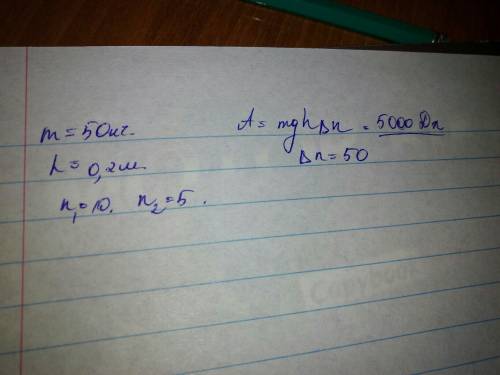 m = 50 кг.
h = 0,2 м.
n₁ = 10. n₂ = 5.
A = mghΔn = 5000 Дж
Δn = 50
Copybook